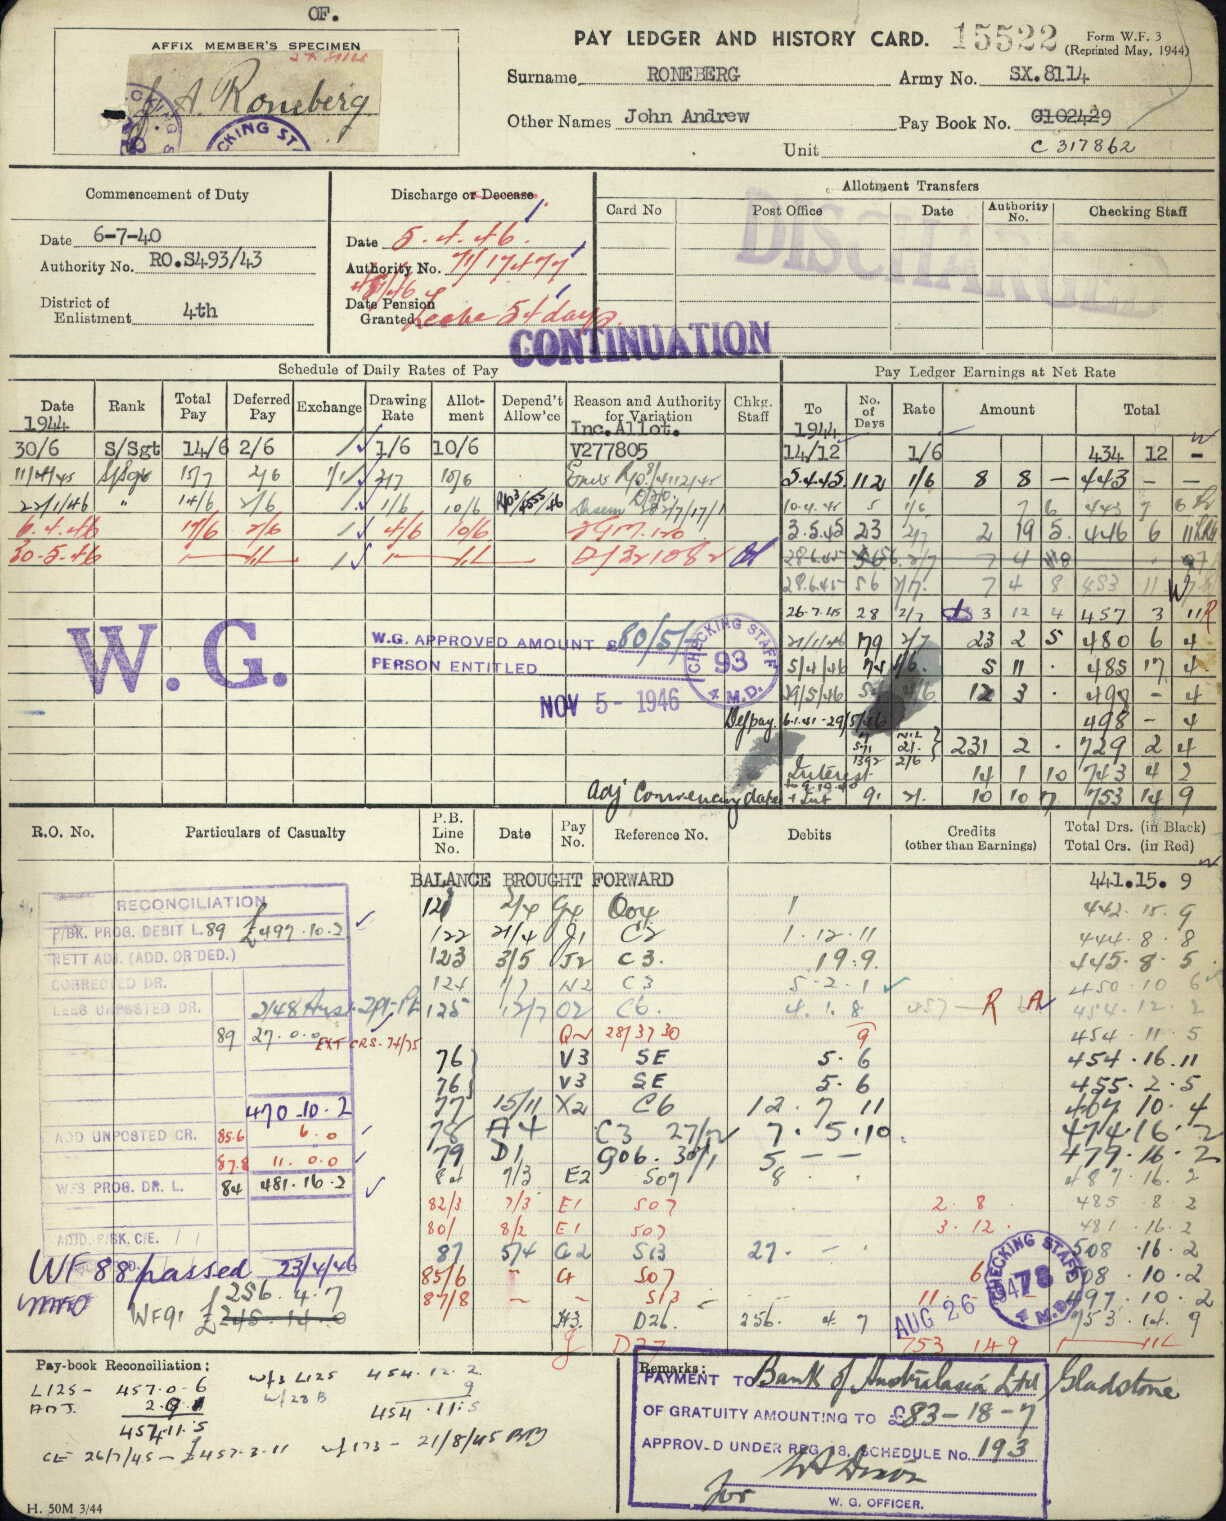 OF.
AFFIX MEMBER'S SPECIMEN
J. A. Roneberg
CKING ST
PAY LEDGER AND HISTORY CARD.
15522
Form W.F. 3
(Reprinted May, 1944)
Surname RONEBERG Army No. SX.8114
Other Names John Andrew Pay Book No. 0102429
Unit C 317862
Commencement of Duty
Date 6-7-40
Authority No. RO.S493/43
District of
Enlistment 4th
Discharge or Decease
Date 5.4.46.
Authority No. 71/17477
Date Pension
Granted Leave 54 days
Allotment Transfers
Card No Post Office Date Authority No. Checking Staff
CONTINUATION
Schedule of Daily Rates of Pay
Date Rank Total Pay Deferred Pay Exchange Drawing Rate Allot-ment Depend't Allow'ce Reason and Authority for Variation Chkg. Staff
1944 Inc.Allot.
30/6 S/Sgt 14/6 2/6 1/6 10/6 V277805
11/4/45 S/Sgt 15/7 2/6 2/7 10/6
22/1/46 " 14/6 2/6 1/6 10/6
6.4.46 17/6 2/6 4/6 10/6
30-5-46
Pay Ledger Earnings at Net Rate
To No. of Days Rate Amount Total
1944
14/12 1/6 434 12 -
5.4.45 112 1/6 8 8 - 443 - -
10.4.45 5 1/6 7 6 443 7 6
3.5.45 23 2/7 2 19 5 446 6 11
28.6.45 56 2/7 7 4 8
28.6.45 56 2/7 7 4 8 453 11 7
26.7.45 28 2/7 3 12 4 457 3 11
21/1/46 179 2/7 23 2 5 480 6 4
5/4/46 74 1/6 5 11 . 485 17 4
29/5/46 54 4/6 12 3 . 498 - 4
Def pay. 6.1.41 - 29/5/46 498 - 4
NIL
571 2/-
1392 2/6 231 2 . 729 2 4
Interest 14 1 10 743 4 2
Adj Commencing date + Int 91 2/- 10 10 7 753 14 9
W. G.
W.G. APPROVED AMOUNT £ 80/5/-
PERSON ENTITLED
NOV 5 - 1946
CHECKING STAFF 93 4 M.D.
R.O. No. Particulars of Casualty P.B. Line No. Date Pay No. Reference No. Debits Credits (other than Earnings) Total Drs. (in Black) Total Crs. (in Red)
BALANCE BROUGHT FORWARD 441.15.9
121 2/4 1 442.15.9
122 21/4 J1 C2 1.12.11 444.8.8
123 3/5 J2 C3. 19.9. 445.8.5
124 N2 C3 5.2.1 450 10 6
125 12/7 O2 C6. 4.1.8 454.12.2
28/3730 9 454.11.5
76 V3 SE 5.6 454.16.11
76 V3 SE 5.6 455.2.5
77 15/11 X2 C6 12.7 11 467 10.4
78 A4 C3 27/12 7.5.10 474.16.2
79 D1 G06. 30/1 5 - - 479.16.2
84 7/3 E2 S07 8 . . 487.16.2
82/3 7/3 E1 S07 2.8 485.8.2
80/ 8/2 E1 S07 3.12. 481.16.2
87 5/4 G2 S13 27. - . 508.16.2
85/6 S07 6 508.10.2
87/8 S13 11 497.10.2
H3. D26. 256. 4 7 753.14.9
D27 753 14 9
RECONCILIATION
P/BK. PROG. DEBIT L. 89 £497.10.2
NETT ADJ. (ADD. OR DED.)
CORRECTED DR.
LESS UNPOSTED DR.
89 27.0.0 EXT CRS. 74/75
470.10.2
ADD UNPOSTED CR. 85.6 6.0
87.8 11.0.0
WF3 PROG. DR. L. 84 481.16.2
ADJD. P/BK. C/E. / /
WF88 passed 23/4/46
WF91 £ 256.4.7
245.14.0
CHECKING STAFF 78 4 M.D.
AUG 26
Pay-book Reconciliation:
L125 - 457.0.6
ADJ. 2.9.1
454.11.5
CE 26/7/45 - £457.3.11 wf 173 - 21/8/45
W/3 L125 454.12.2
W/28B 9
454.11.5
Remarks:
PAYMENT TO Bank of Australasia Ltd Gladstone
OF GRATUITY AMOUNTING TO £83-18-7
APPROVED UNDER REG 18, SCHEDULE No. 193
for
W. G. OFFICER.
H. 50M 3/44